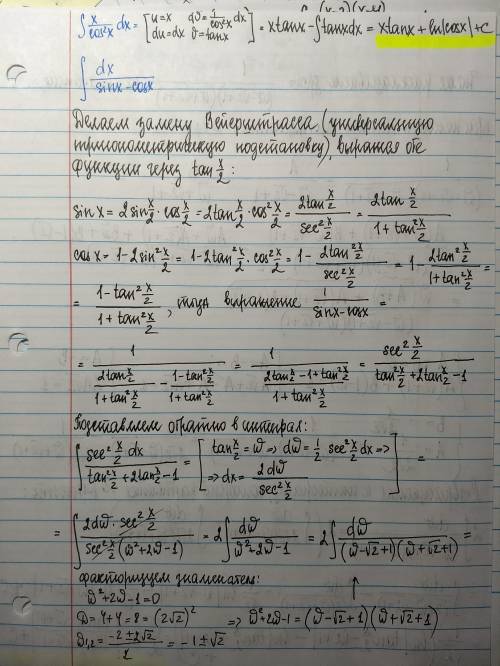 ∫ x/cos²x dx = [u=x dv=1/cos²x dx; du=dx v=tanx] = xtanx - ∫tanxdx = xtanx + ln|cosx| + C
∫ dx/(sinx-cosx)
Делаем замену Вейерштрасса (универсальную
тригонометрическую подстановку), выражая обе
функции через tan x/2:
sin x = 2sin x/2 · cos x/2 = 2tan x/2 · cos² x/2 = 2tan x/2 / sec² x/2 = 2tan x/2 / (1+tan² x/2)
cos x = 1-2sin² x/2 = 1-2tan² x/2 · cos² x/2 = 1 - 2tan² x/2 / sec² x/2 = 1 - 2tan² x/2 / (1+tan² x/2) =
= (1-tan² x/2) / (1+tan² x/2), тогда выражение 1/(sinx-cosx) =
= 1 / (2tan x/2 / (1+tan² x/2) - (1-tan² x/2) / (1+tan² x/2)) = 1 / ((2tan x/2 - 1 + tan² x/2) / (1+tan² x/2)) = sec² x/2 / (tan² x/2 + 2tan x/2 - 1)
Подставляем обратно в интеграл:
∫ sec² x/2 dx / (tan² x/2 + 2tan x/2 - 1) = [tan x/2 = ϑ => dϑ = 1/2 sec² x/2 dx => => dx = 2dϑ / sec² x/2] =
= ∫ 2dϑ · sec² x/2 / (sec² x/2 (ϑ²+2ϑ-1)) = 2∫ dϑ / (ϑ²+2ϑ-1) = 2∫ dϑ / ((ϑ-√2+1)(ϑ+√2+1)) =
факторизуем знаменатель:
ϑ²+2ϑ-1=0
D = 4+4 = 8 = (2√2)² => ϑ²+2ϑ-1 = (ϑ-√2+1)(ϑ+√2+1)
ϑ1,2 = (-2±2√2)/2 = -1±√2